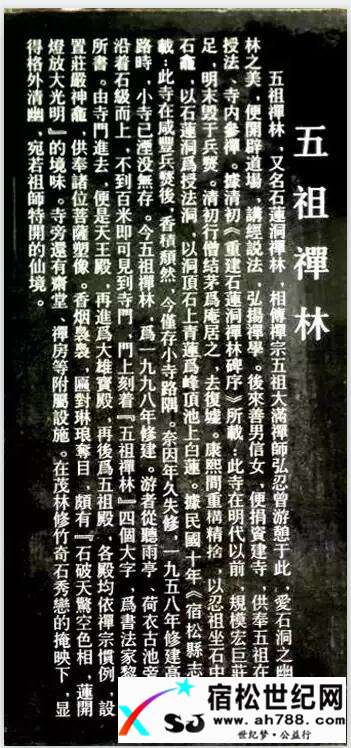 五祖禪林
五祖禪林,又名石蓮洞禪林,相傳禪宗五祖大滿禪師弘忍曾游憩于此,愛石洞之幽,
林之美,便開辟道場,講經説法,弘揚禪學。後來善男信女,便捐資建寺,供奉五祖在
授法、寺内參禪。據清初《重建石蓮洞禪林碑序》所載:此寺在明代以前,規模宏巨莊
足,明末毁于兵燹。清初行僧結茅爲庵居之,去復墟。康熙間重構精捨,以忍祖坐石中
石龕,以石蓮洞爲授法洞,以洞頂石上青蓮爲峰頂池上白蓮。據民國十年《宿松縣志
載:此寺在咸豐兵燹後,香積頽然,今僅存小寺路隅。奈因年久失修,一九五八年修建高
路時,小寺已湮没無存。今五祖禪林,爲一九九八年修建。游者從聽雨亭、荷衣古池旁
沿着石級而上,不到百米即可見到寺門,門上刻着『五祖禪林』四個大字,爲書法家黎
所書。由寺門進去,便是天王殿,再進爲大雄寶殿,再後爲五祖殿,各殿均依禪宗慣例,設
置莊嚴神龕,供奉諸位菩薩塑像。香烟裊裊,匾對琳琅奪目,頗有『石破天驚空色相,蓮開
燈放大光明』的境味。寺旁還有齋堂、禪房等附屬設施。在茂林修竹奇石秀巒的掩映下,顯
得格外清幽,宛若祖師特開的仙境。
SJ
宿松世纪网
www.ah788.com
世纪梦·公益行